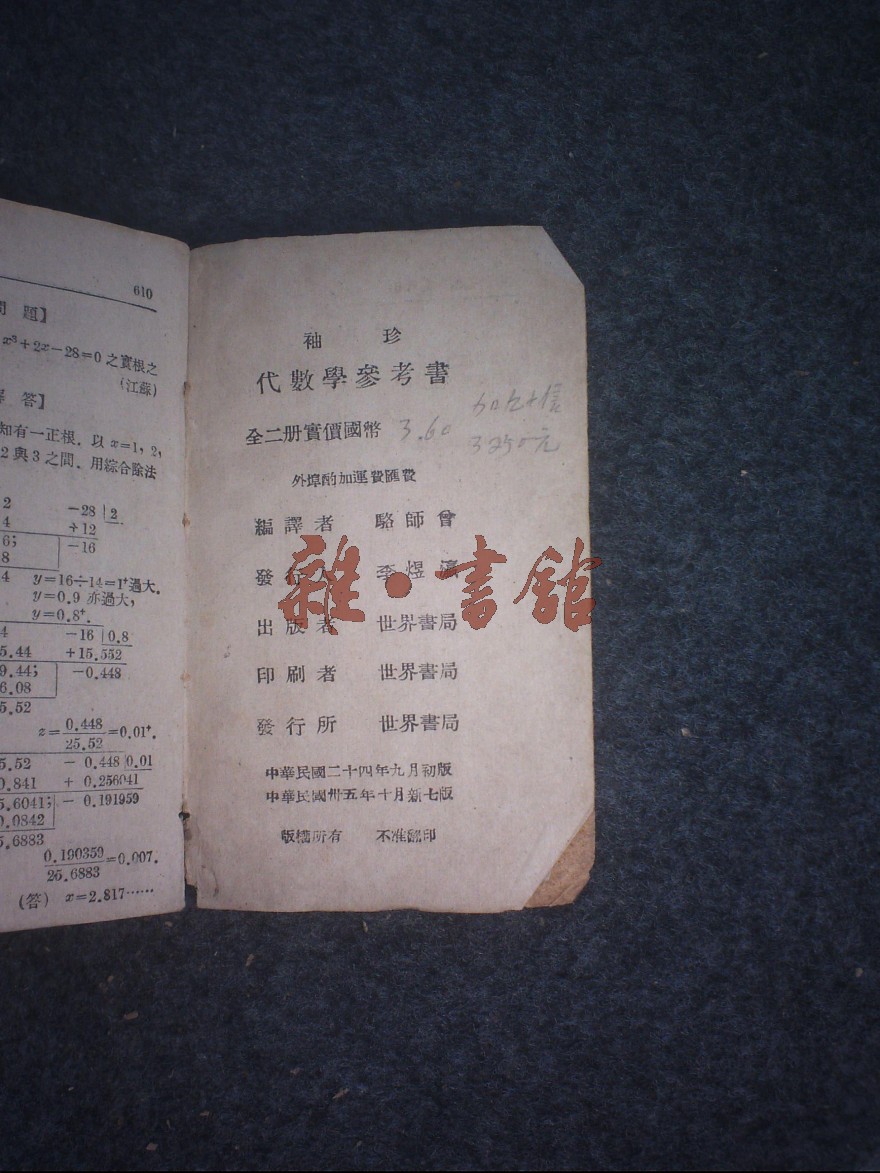 610
問 題】
x³+2x-28=0 之實根之
(江蘇)
解 答】
知有一正根. 以 x=1, 2,
2 與 3 之間. 用綜合除法
2 -28 2
4 +12
6; -16
8
4 y=16÷14=1⁺過大.
y=0.9 亦過大,
y=0.8⁺.
4 -16 0.8
5.44 +15.552
9.44; -0.448
6.08
5.52
z=0.448/25.52=0.01⁺.
5.52 - 0.448 0.01
0.841 + 0.256041
5.6041; - 0.191959
0.0842
5.6883
0.190359/25.6883=0.007.
(答) x=2.817……
袖 珍
代數學參考書
全二册實價國幣 3.60
外埠酌加運費匯費
編譯者 駱師曾
發行人 李煜瀛
出版者 世界書局
印刷者 世界書局
發行所 世界書局
中華民國二十四年九月初版
中華民國卅五年十月新七版
版權所有 不准翻印
雜·書館